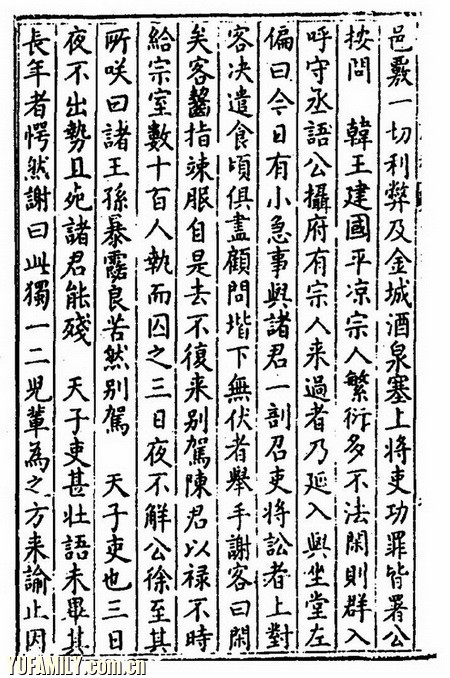 邑覈一切利弊及金城酒泉塞上将吏功罪皆署公
按問　韓王建國平凉宗人繁衍多不法閑則群入
呼守丞語公攝府有宗人来過者乃延入與坐堂左
偏曰今日有小急事與諸君一剖召吏将訟者上對
客决遣食頃俱盡顧問堦下無伏者舉手謝客曰閑
矣客齰指竦服自是去不復来别駕陳君以禄不時
給宗室數十百人執而囚之三日夜不解公徐至其
所咲曰諸王孫暴露良苦然别駕　天子吏也三日
夜不出勢且死諸君能殘　天子吏甚壮語未畢其
長年者愕然謝曰此獨一二児輩為之方来諭止因
YUFAMILY.com.cn